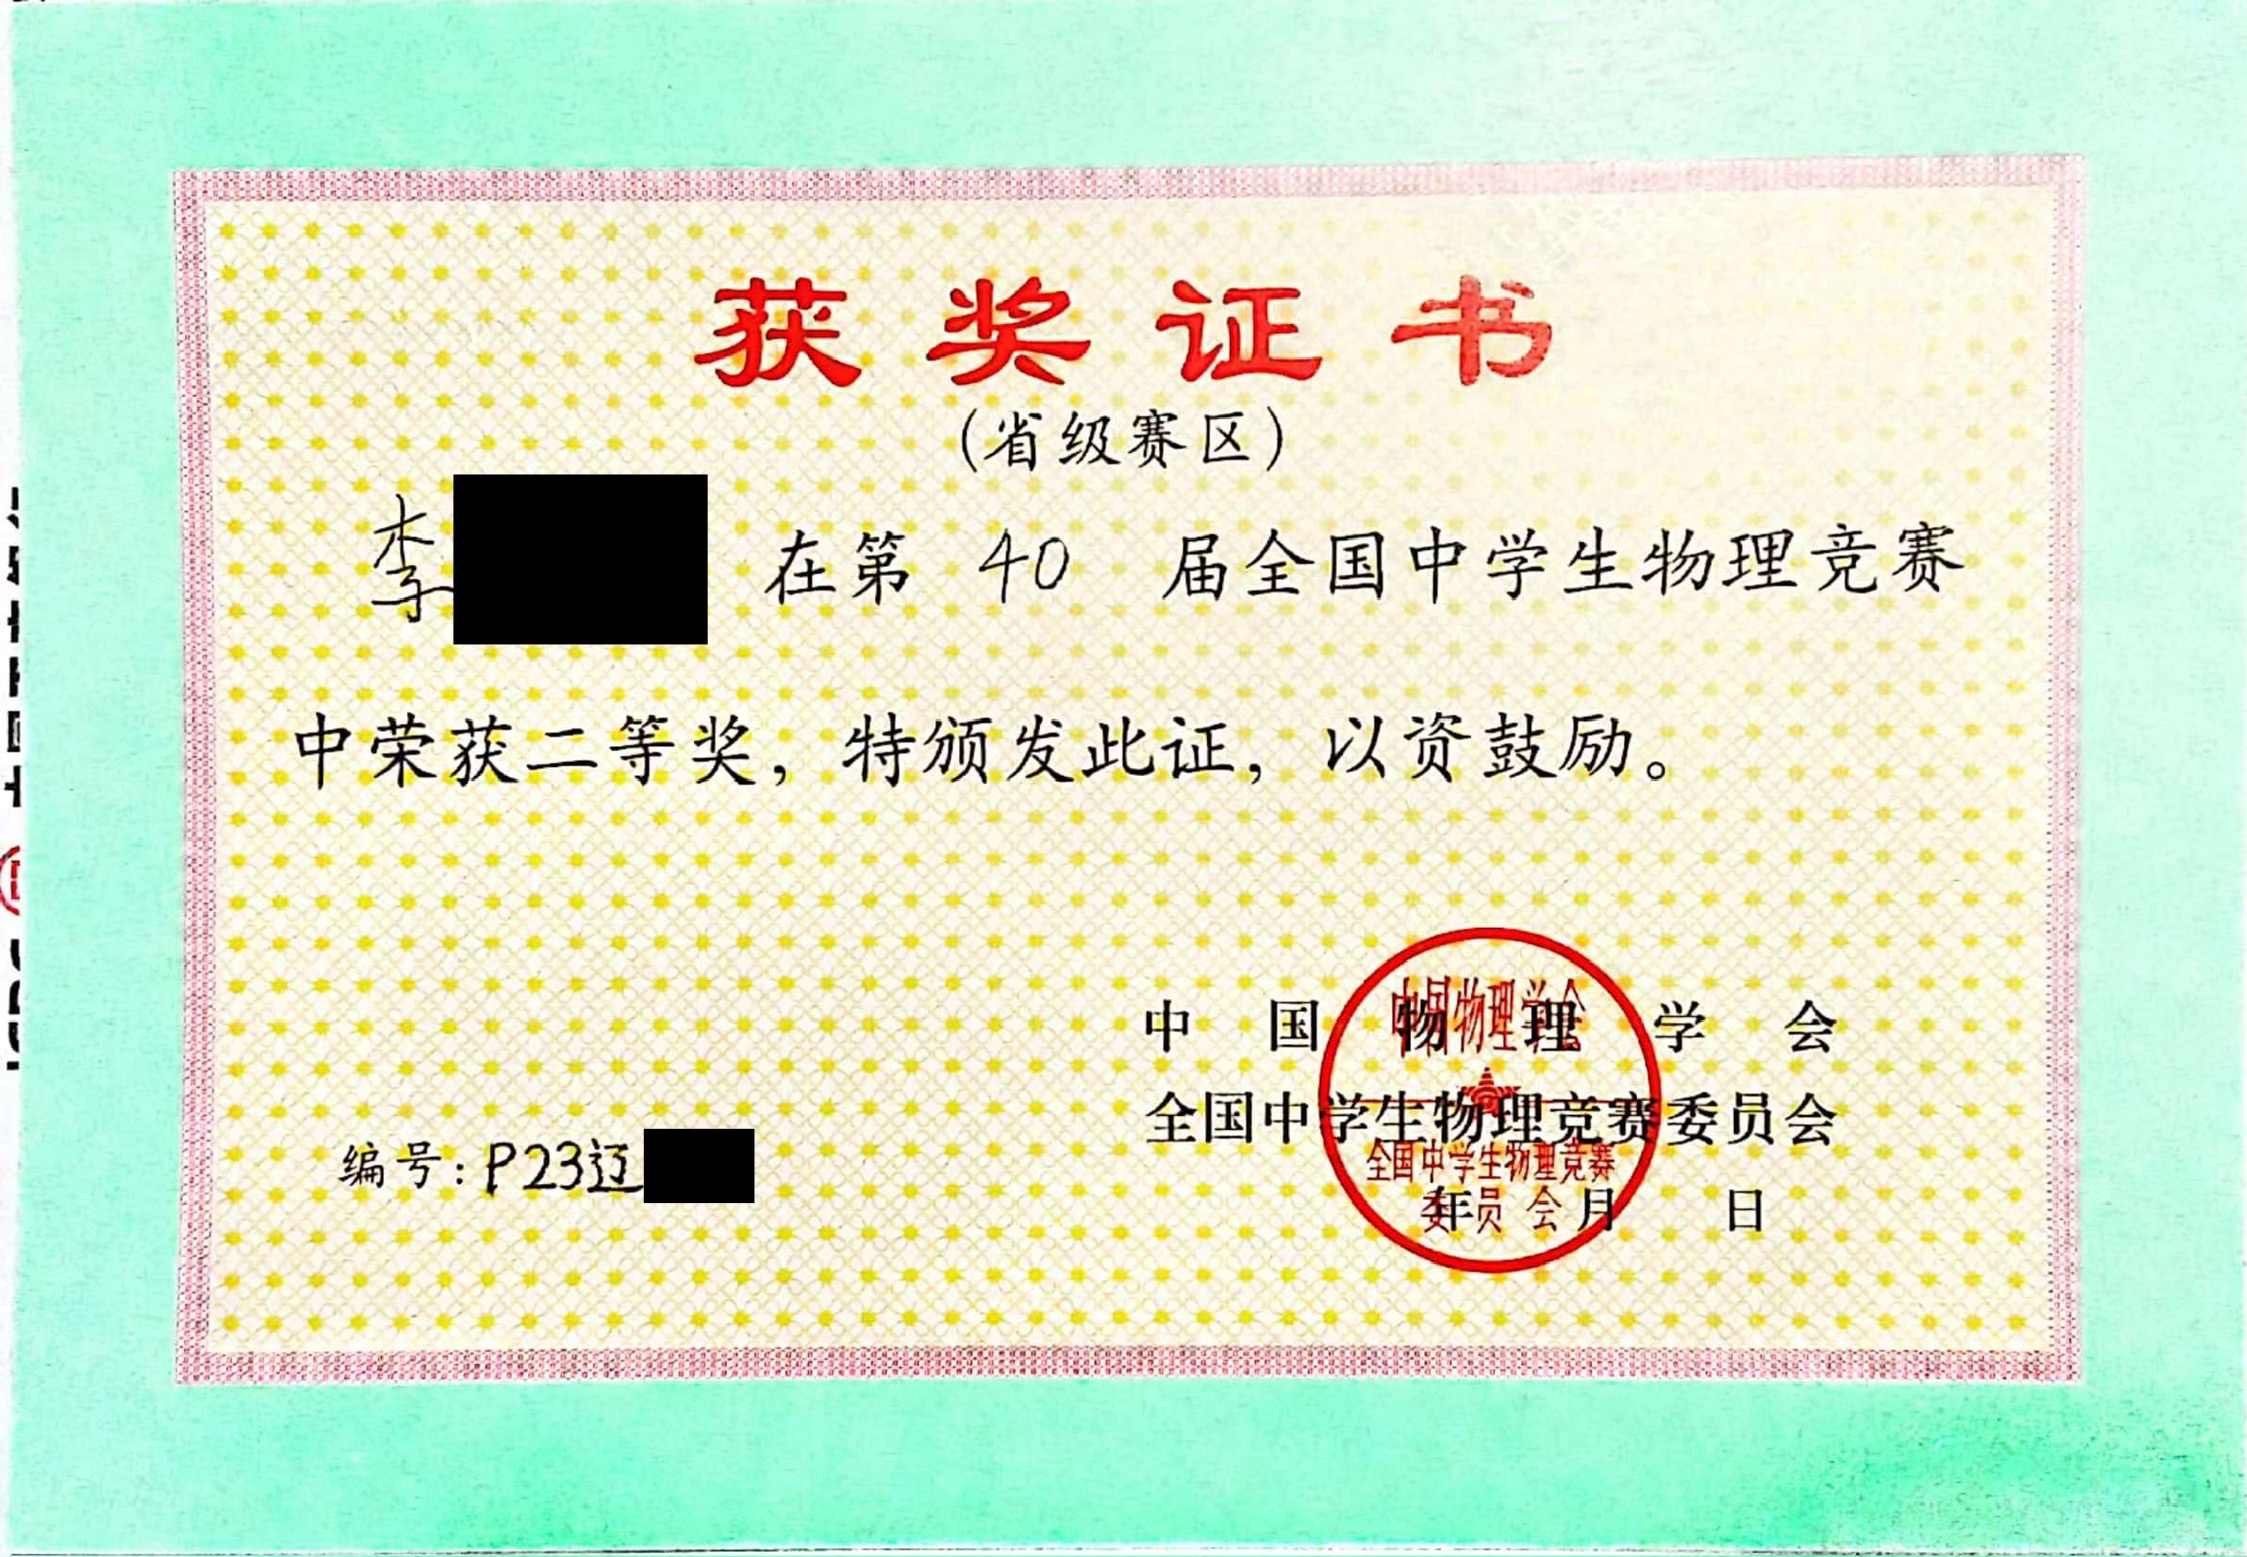 获奖证书
(省级赛区)
李 在第 40 届全国中学生物理竞赛
中荣获二等奖，特颁发此证，以资鼓励。
中国物理学会
全国中学生物理竞赛委员会
年 月 日
编号：P23辽
中国物理学会
全国中学生物理竞赛
委员会